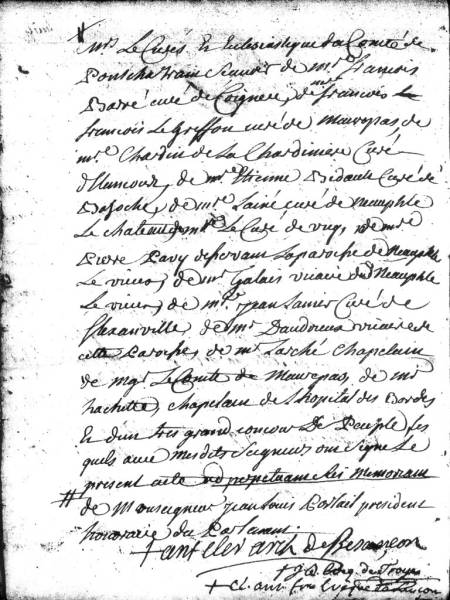 Mrs Le Curés Et Ecclesiastique du Comté de
Pontchartrain Scavoir de mr francois
Barré curé de Coignere, de francois
francois Le Griffon curé de Maurepas de
mre Chardin de La Chardiniere Curé
d'Elancourt, de mre Etienne Bidault Curé de
Bazoche, de mre Lainé curé de Neauphle
Le chateau, de mre Le Curé de vicq, de mre
Pierre Pavy deservant La paroche de Neauphle
Le vieux, de mr Galais vicaire de Neauphle
Le vieux, de mre jean Lanier Curé de
, de mr Daudreux vicaire de
cette Paroche, de mr Larché Chapelain
de mgr Le Comte de Maurepas, de mr
hachette, chapelain de L'hospital des Bordes
Et d'un tres grand concour de Peuple les
quels avec mesdits Seigneurs ont signé Le
present acte ad perpetuam Rei Memoriam
# de Monseigneur jean Louis Portail president
honoraire du Parlement
+ ant cler arch de Besançon
+ J. B. Eveq. de Troyes
+